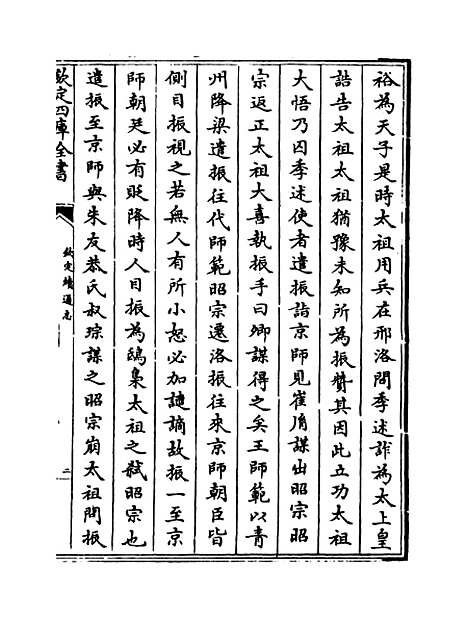 裕為天子是時太祖用兵在邢洺間季述詐為太上皇
誥告太祖太祖猶豫未知所為振贊其因此立功太祖
大悟乃囚季述使者遣振詣京師見崔𦙍謀出昭宗昭
宗返正太祖大喜執振手曰卿謀得之矣王師範以青
州降梁遣振往代師範昭宗遷洛振往來京師朝臣皆
側目振視之若無人有所小怒必加譴謫故振一至京
師朝廷必有貶降時人目振為鴟梟太祖之弑昭宗也
遣振至京師與朱友恭氏叔琮謀之昭宗崩太祖問振
欽定四庫全書
欽定續通志
二